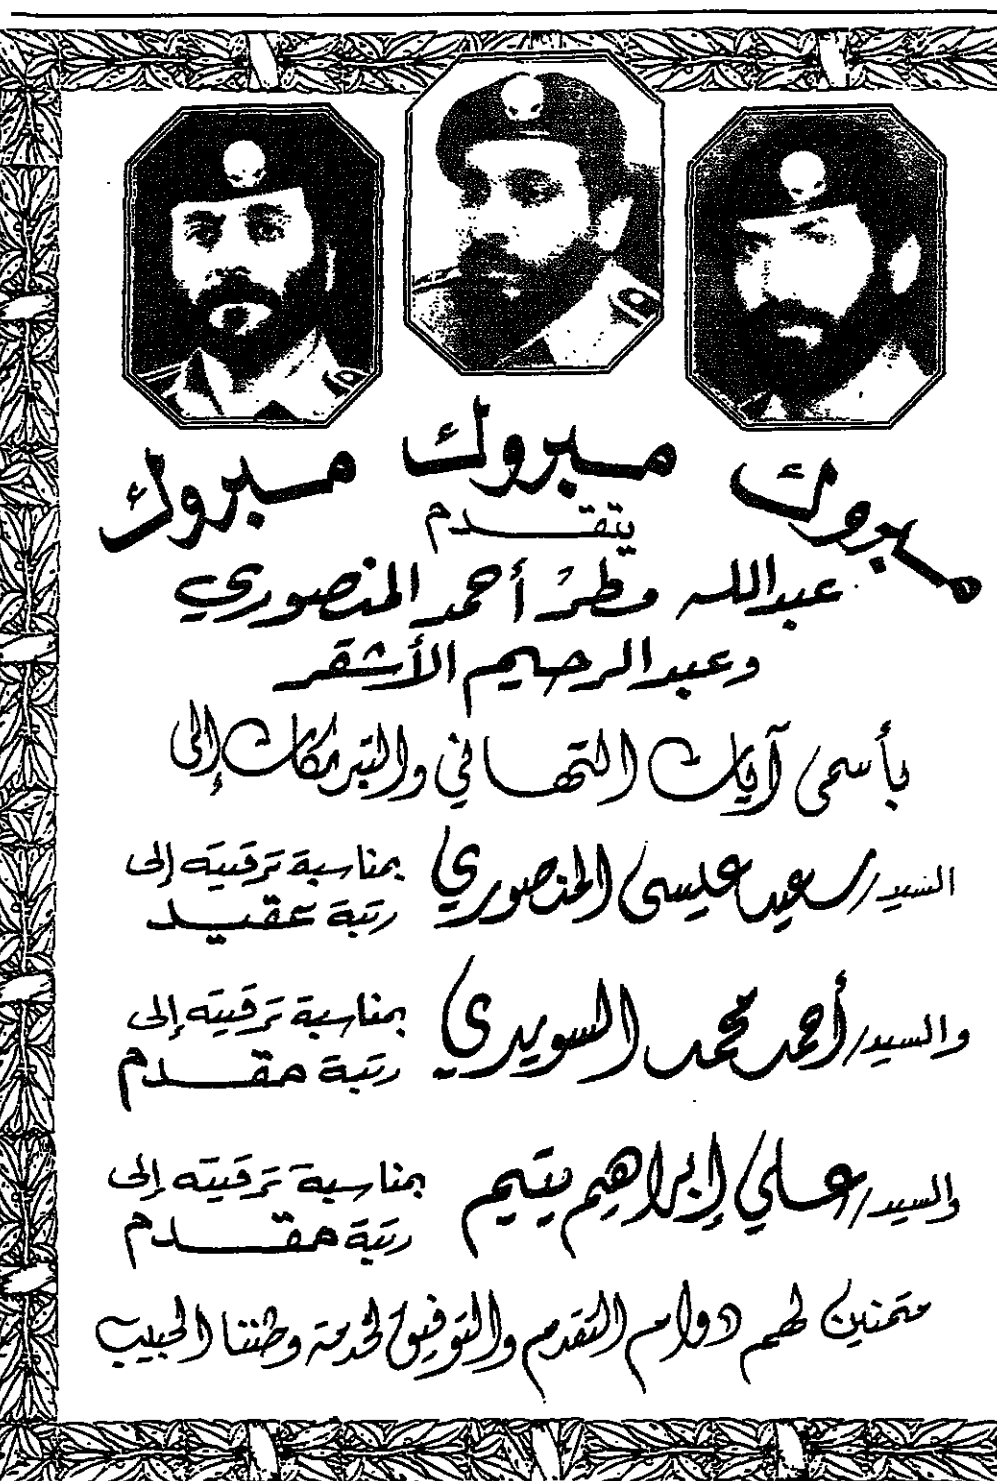 مبروك مبروك مبروك
يتقدم
عبدالله مطر أحمد المنصوري
وعبدالرحيم الأشقر
بأسمى آيات التهاني والتبريكات إلى
السيد/ سعيد عيسى المنصوري بمناسبة ترقيته إلى
رتبة عقيد
والسيد/ أحمد محمد السويدي بمناسبة ترقيته إلى
رتبة مقدم
والسيد/ علي إبراهيم يتيم بمناسبة ترقيته إلى
رتبة مقدم
متمنين لهم دوام التقدم والتوفيق لخدمة وطننا الحبيب